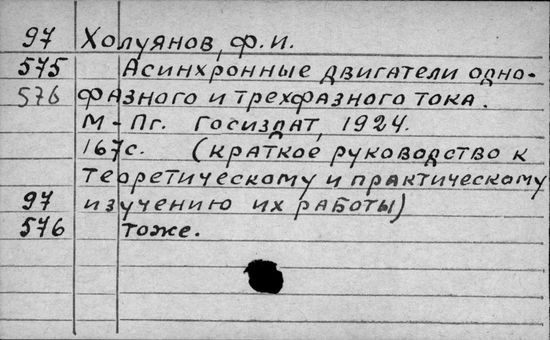 97 Холуянов, Ф.И.
575 Асинхронные двигатели одно-
576 фазного и трехфазного тока.
М-Пг. Госиздат, 1924.
167с. (краткое руководство к
теоретическому и практическому
97 изучению их работы)
576 тоже.